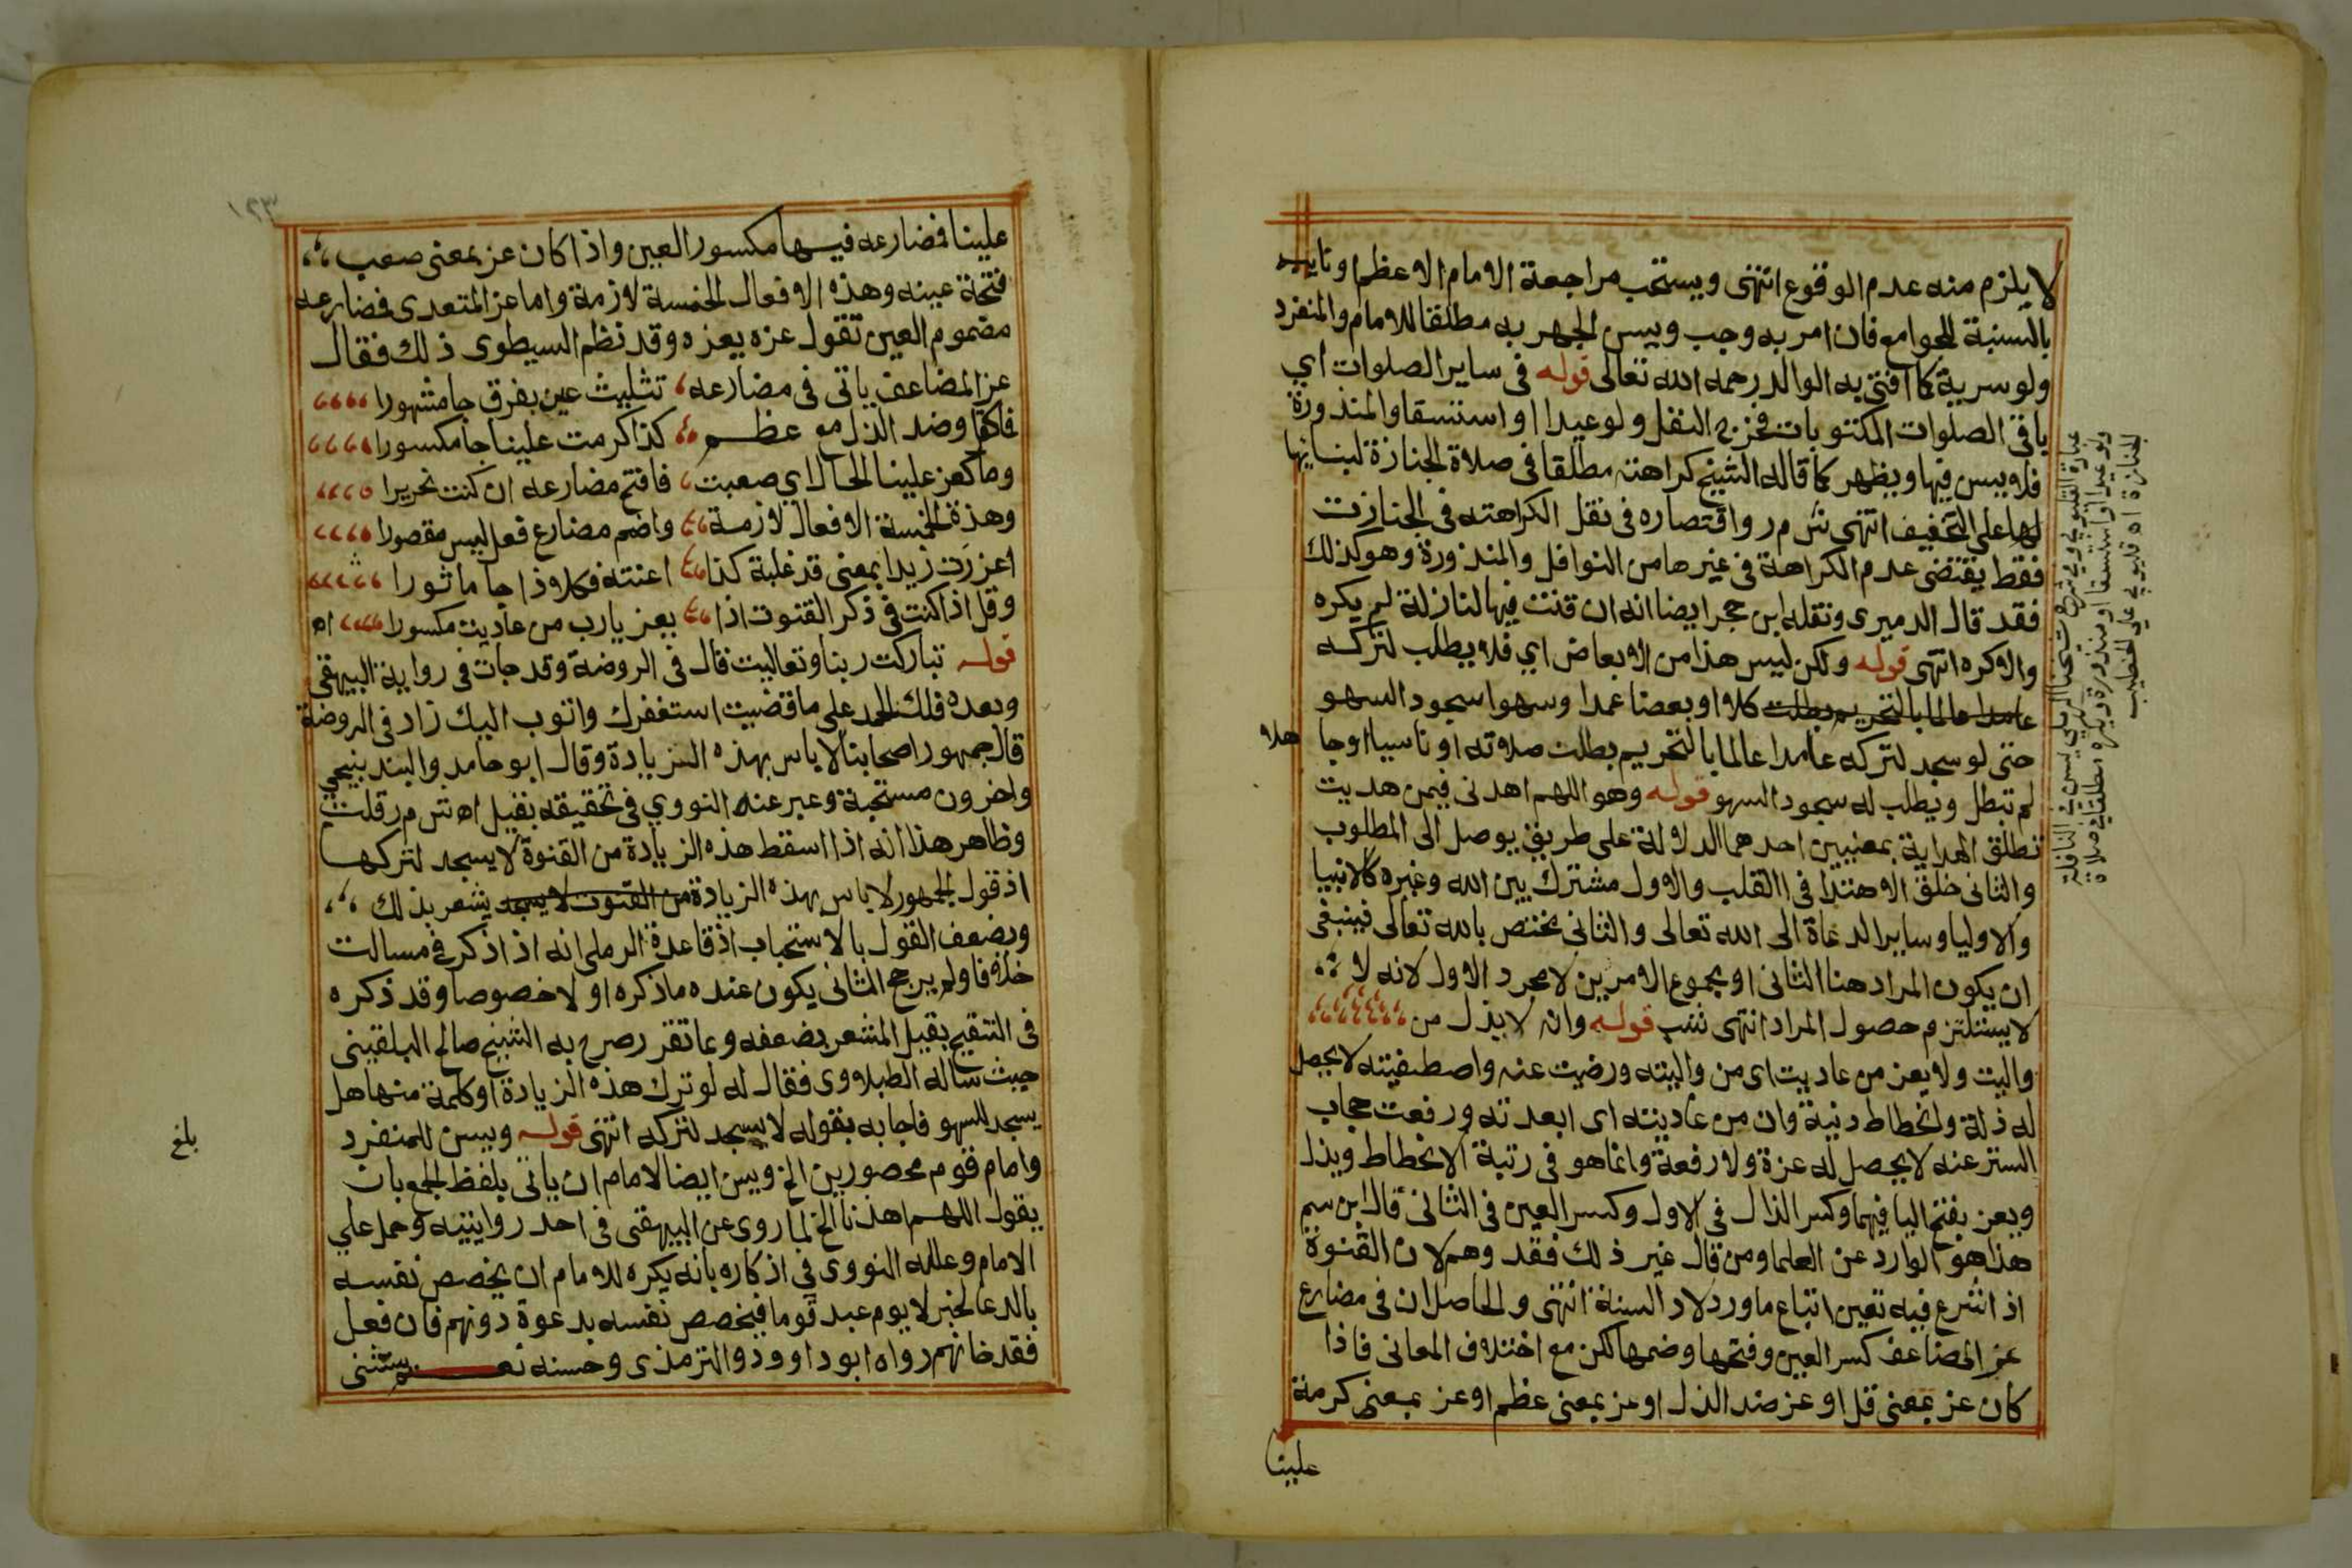 لا يلزم منه عدم الوقوع انتهى ويستحب مراجعة الامام الاعظم او نايبه
بالنسبة للجوامع فان امر به وجب ويسن الجهر به مطلقا للامام والمنفرد
ولو سرية كما افتى به الوالد رحمه الله تعالى قوله في ساير الصلوات اي
باقي الصلوات المكتوبات فخرج النفل ولو عيدا او استسقا والمنذورة
فلا يسن فيها ويظهر كما قاله الشيخ كراهته مطلقا في صلاة الجنازة لبنايها
لها على التخفيف انتهى ش م ر واقتصاره في نقل الكراهته في الجنازت
فقط يقتضي عدم الكراهة في غيرها من النوافل والمنذورة وهو كذلك
فقد قال الدميري ونقله ابن حجر ايضا انه ان قنت فيها لنازلة لم يكره
والا كره انتهى قوله ولكن ليس هذا من الابعاض اي فلا يطلب لتركه
عامدا عالما بالتحريم بطلت كلا او بعضا عمدا وسهوا سجود السهو
حتى لو سجد لتركه عامدا عالما بالتحريم بطلت صلاته او ناسيا او جا
هلا
لم تبطل ويطلب له سجود السهو قوله وهو اللهم اهدني فيمن هديت
تطلق الهداية بمعنيين احدهما الدلالة على طريق يوصل الى المطلوب
والثاني خلق الاهتدا في القلب والاول مشترك بين الله وغيره كالانبيا
والاوليا وساير الدعاة الى الله تعالى والثاني مختص بالله تعالى فينبغي
ان يكون المراد هنا الثاني او مجموع الامرين لا مجرد الاول لانه لا
لا يستلتزم حصول المراد انتهى قوله وانه لا يذل من
واليت ولا يعز من عاديت اي من واليته ورضيت عنه واصطفيته لا يحصل
له ذلة وانحطاط دنية وان من عاديته اي ابعدته ورفعت حجاب
الستر عنه لا يحصل له عزة ولا رفعة وانما هو في رتبة الانحطاط ويذل
ويعز بفتح اليا فيهما وكسر الذال في الاول وكسر العين في الثاني قال ابن سم
هذا هو الوارد عن العلما ومن قال غير ذلك فقد وهم لان القنوة
اذا شرع فيه تعين اتباع ما ورد لاد السنة انتهى والحاصل ان في مضارع
عز المضاعف كسر العين وفتحها وضمها لكن مع اختلاف المعاني فاذا
كان عز بمعنى قل او عز ضد الذل او عز بمعنى عظم او عز بمعنى كرمة
علينا
عبارة القليوبي وفي شرح شيخنا الرملي يسن في النافلة
ولو عيدا او استسقا او منذورة ويكره مطلقا في صلاة
الجنازة اه قليوبي على الخطيب
١٢٣
علينا فمضارعه فيها مكسور العين واذا كان عز بمعنى صعب
فتحة عينه وهذه الافعال الخمسة لازمة واما عز المتعدي فمضارعه
مضموم العين تقول عزه يعزه وقد نظم السيطوي ذلك فقال
عز المضاعف ياتي في مضارعه تثليث عين بفرق جا مشهورا
فما كقل وضد الذل مع عظم كذا كرمت علينا جا مكسورا
وما كعز علينا الحال اي صعبت فافتح مضارعه ان كنت نحريرا
وهذة الخمسة الافعال لازمة واضم مضارع فعل ليس مقصورا
اعززت زيدا بمعنى قد غلبة كذا اعنته فكلا وذا جا ماثورا
وقل اذا كنت في ذكر القنوت اذا يعز يا رب من عاديت مكسورا اه
قوله تباركت ربنا وتعاليت قال في الروضة وقد جات في رواية البيهقي
وبعده فلك الحمد على ما قضيت استغفرك واتوب اليك زاد في الروضة
قال جمهور اصحابنا لا باس بهذه الزيادة وقال ابو حامد والبندنيجي
واخرون مستحبة وعبر عنه النووي في تحقيقه بقيل اه ش م ر قلت
وظاهر هذا انه اذا اسقط هذه الزيادة من القنوة لا يسجد لتركها
اذ قول الجمهور لا باس بهذه الزيادة من القنوت لا يسجد يشعر بذلك
ويضعف القول بالاستحباب اذ قاعدة الرملي انه اذا ذكر في مسالت
خلافا ولم يرجح الثاني يكون عنده ما ذكره اولا خصوصا وقد ذكره
في التنقيح بقيل المشعر بضعفه وعا تقرر صرح به الشيخ صالح البلقيني
حيث ساله الطبلاوي فقال له لو ترك هذه الزيادة او كلمة منها هل
يسجد للسهو فاجابه بقوله لا يسجد لتركه انتهى قوله ويسن للمنفرد
بلغ
وامام قوم محصورين الخ ويسن ايضا لامام ان ياتي بلفظ الجمع بان
يقول اللهم اهدنا الخ لما روي عن البيهقي في احد روايتيه وحمل علي
الامام وعلله النووي في اذكاره بانه يكره للامام ان يخصص نفسه
بالدعا لخبر لا يوم عبد قوما فيخصص نفسه بدعوة دونهم فان فعل
فقد خانهم رواه ابو داوود والترمذي وحسنه نعم يستثنى